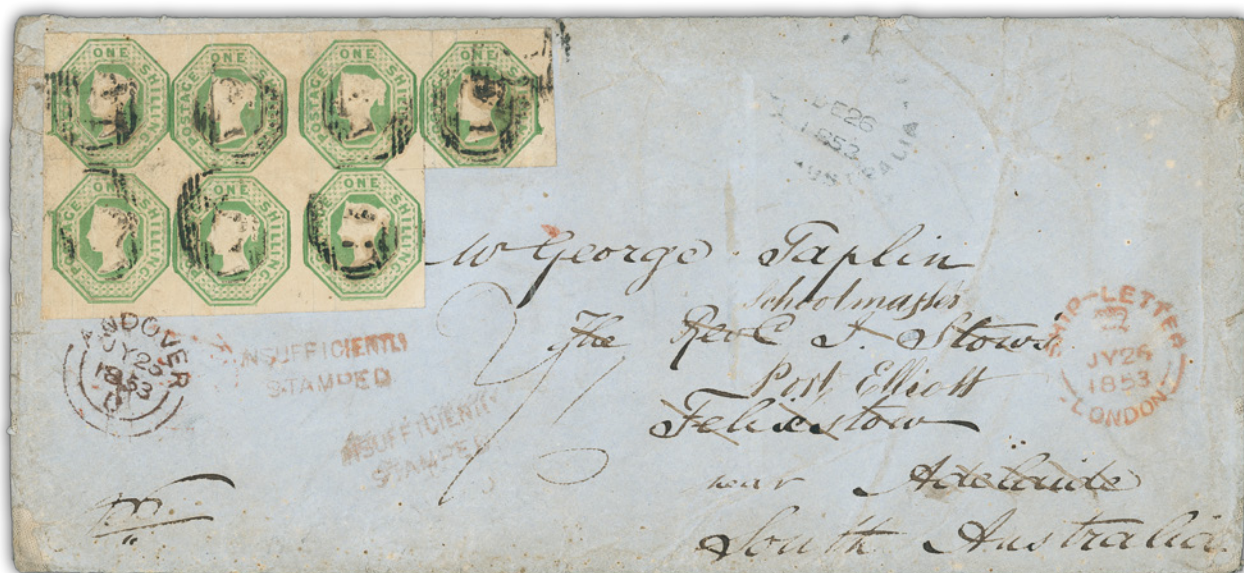 POSTAGE ONE SHILLING
POSTAGE ONE SHILLING
POSTAGE ONE SHILLING
POSTAGE ONE SHILLING
POSTAGE ONE SHILLING
POSTAGE ONE SHILLING
POSTAGE ONE SHILLING
DE 26
1853
AUSTRALIA
Mr George Taplin
Schoolmaster
The Revd T. Stow's
Port Elliott
Felixstow
near Adelaide
South Australia
ANDOVER
JY 25
1853
INSUFFICIENTLY
STAMPED
INSUFFICIENTLY
STAMPED
SHIP-LETTER
JY 26
1853
LONDON